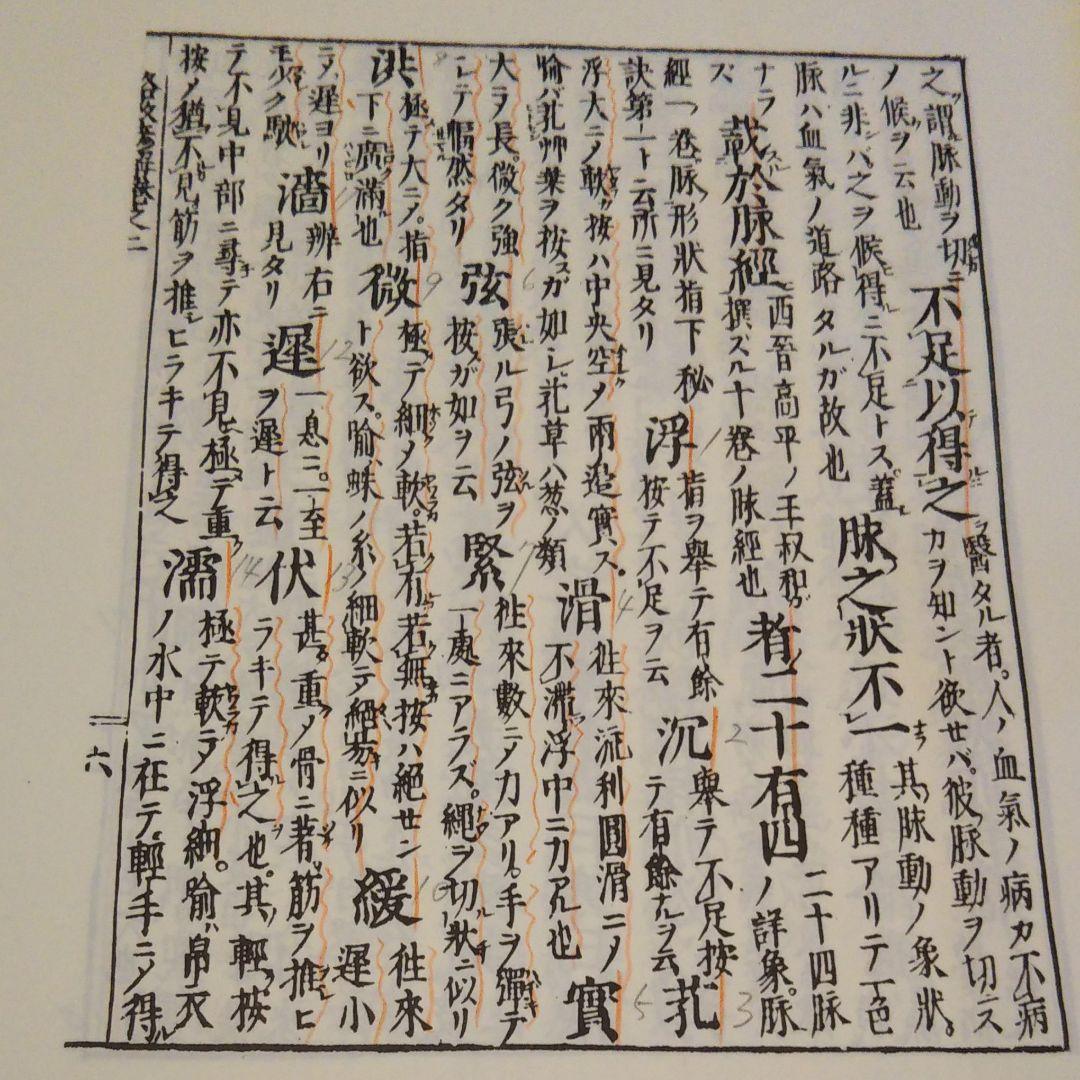 之謂脉動ヲ切ニ
ノ候ヲ云也
不足以得之
ヲ醫タル者。人ノ血氣ノ病カ不病
カヲ知ント欲セバ。彼脉動ヲ切ニス
ルニ非バ之ヲ候得ニ不足トス蓋
脉ハ血氣ノ道路タルガ故也
脉之狀不一
其脉動ノ象狀。
種種アリテ一色
ナラ
ズ
載於脉經
西晉高平ノ王叔和ガ
撰ズル十卷ノ脉經也
者二十有四
二十四脉
ノ詳象。脉
經一卷脉形狀指下秘
訣第一ト云所ニ見タリ
浮
1
指ヲ舉テ有餘
按テ不足ヲ云
沉
2
舉テ不足按
テ有餘ナルヲ云
芤
3
浮大ニメ軟按ハ中央空メ兩边實ス。
喩バ芤艸葉ヲ按ズガ如シ芤草ハ葱ノ類
滑
4
徃來流利圓滑ニメ
不滯浮中ニ力アル也
實
5
大ヲ長。微ク強
シテ愊然タリ
弦
6
張ル弓ノ弦ヲ
按ズガ如ヲ云
緊
7
徃來數ニメ力アリ。手ヲ彈テ
一處ニアラズ。繩ヲ切狀ニ似リ
洪
8
極テ大ニメ。指
下ニ廣滿也
微
9
極テ細メ軟。若有若無按ハ絕セン
ト欲ス。喩蛛ノ糸ノ細軟テ絕易ニ似リ
緩
10
徃來
遲小
ニメ遲ヨリ
モ少ク駃
濇
辨右ニ
見タリ
遲
12
一息ニ。一至
ヲ遲ト云
伏
13
甚重メ骨ニ著。筋ヲ推ヒ
ラキテ得之也。其輕按
テ不見中部ニ尋テ亦不見極テ重
按メ猶不見筋ヲ推ヒラキテ得之
濡
14
極テ軟テ浮細。喩帛衣
ノ水中ニ在テ輕手ニメ得
六